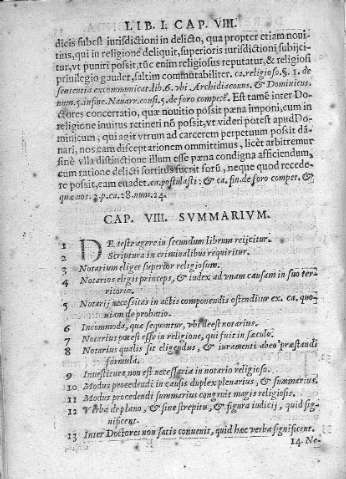 LIB. I. CAP. VIII.
dicis subest iurisdictioni in delicto, qua propter etiam noui-
tius, qui in religione deliquit, superioris iurisdictioni subijci-
tur, vt puniri possit, tūc enim religiosus reputatur, & religiosi
priuilegio gaudet, saltim commutabiliter. ca. religioso. §. 1. de
sententia excommunicat. lib. 6. vbi Archidiaconus, & Dominicus.
num. 5. in fine. Nauarr. cons. 5. de foro compet. Est tamē inter Do-
ctores concertatio, quæ nouitio possit pœna imponi, cum in
religione inuitus retineri nō possit, vt videri potest apud Do-
minicum, qui agit vtrum ad carcerem perpetuum possit dā-
nari, nos eam disceptationem omittimus, licèt arbitremur
sinè vlla distinctione illum esse pœna condigna afficiendum,
cum ratione delicti sortitus fuerit forū, neque quod recede-
re possit, eam euadet. cn. postulasti: & ca. fin. de foro compet. &
quæ not. 2. p. ca. 28. num. 24.
CAP. VIII. SVMMARIVM.
1 DE testragera in secundum librum reijcitur.
2 Scriptura in criminalibus requiritur.
3 Notarium eliget superior religiosum.
4 Notarios eligit princeps, & iudex ad vnam causam in suo ter-
ritorio.
5 Notarij necessitas in actis componendis ostenditur ex. ca. quo-
niam de probatio.
6 Incommoda, quæ sequontur, vbi deest notarius.
7 Notarius potest esse in religione, qui fuit in sæculo.
8 Notarius qualis sit eligendus, & iuramenti abeo præstandi
formula.
9 Inuestitura non est necessaria in notario religioso.
10 Modus procedendi in causis duplex plenarius, & summarius.
11 Modus procedendi summarius congruit magis religiosis.
12 Verba de plano, & sine strepitu, & figura iudicij, quid sig-
nificent.
13 Inter Doctores non satis conuenit, quid hæc verba significent.
14. No-